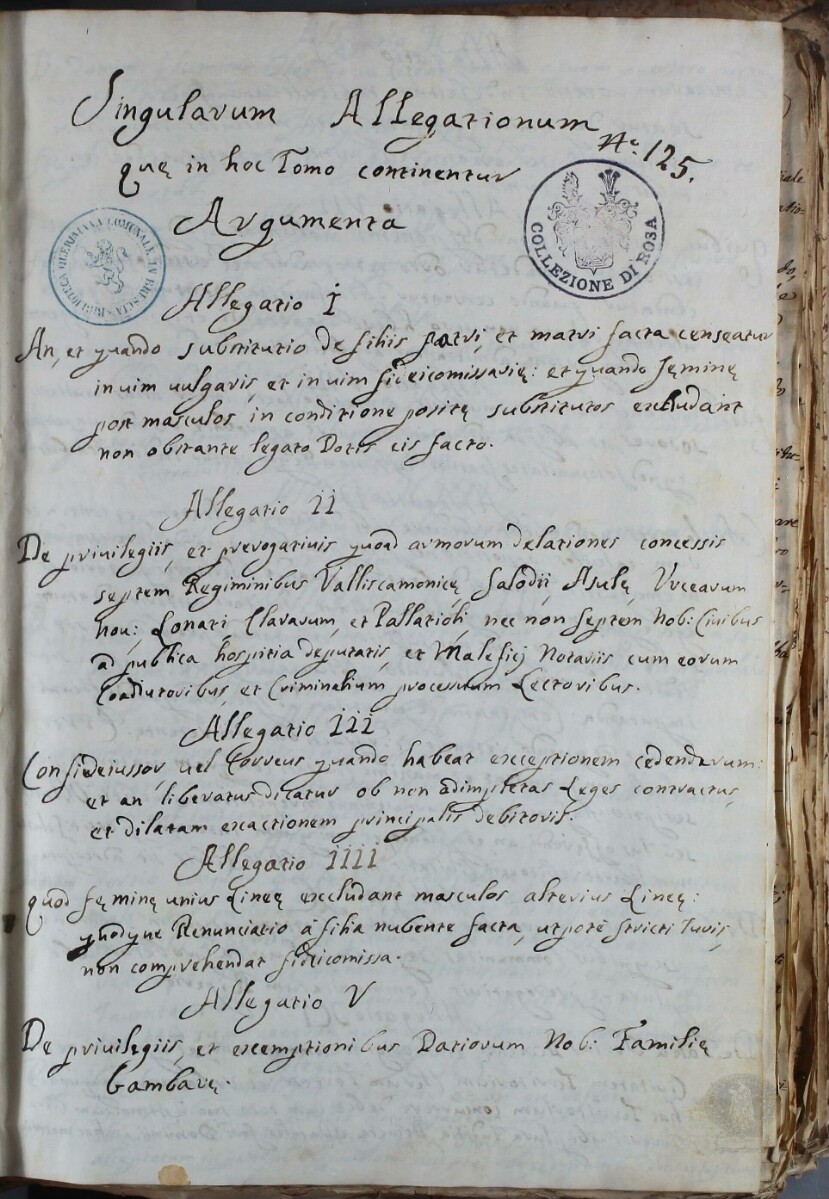 Singularum Allegationum
quę in hoc Tomo continentur
N.º 125.
Argumenta
COLLEZIONE DI ROSA
BIBLIOTECA QUERINIANA COMUNALE IN BRESCIA
Allegatio I
An, et quando substitutio de filiis patri, et matri facta censeatur
in uim uulgaris, et in uim fideicomissarię: et quando fęminę
post masculos in conditione positę substitutos excludant
non obstante legato Dotis eis facto.
Allegatio II
De priuilegiis, et prerogatiuis quoad armorum delationes concessis
septem Regiminibus Valliscamonicę, Salodii, Asulę, Urcearum
nou: Lonati Clararum, et Pallatioli, nec non septem Nob: Ciuibus
ad publica hospitia deputatis, et Maleficij Notariis cum eorum
Coadiutoribus, et Criminalium processuum Lectoribus.
Allegatio III
Confideiussor, uel Correus quando habeat exceptionem cedendarum:
et an liberatus dicatur ob non adimpletas Leges contractus,
et dilatam exactionem principalis debitoris.
Allegatio IIII
quod fęminę unius Lineę excludant masculos alterius Lineę:
quodque Renunciatio à filia nubente facta, utpotè stricti Iuris,
non comprehendat fideicomissa.
Allegatio V
De priuilegiis, et exemptionibus Datiorum Nob: Familię
Gambarę.